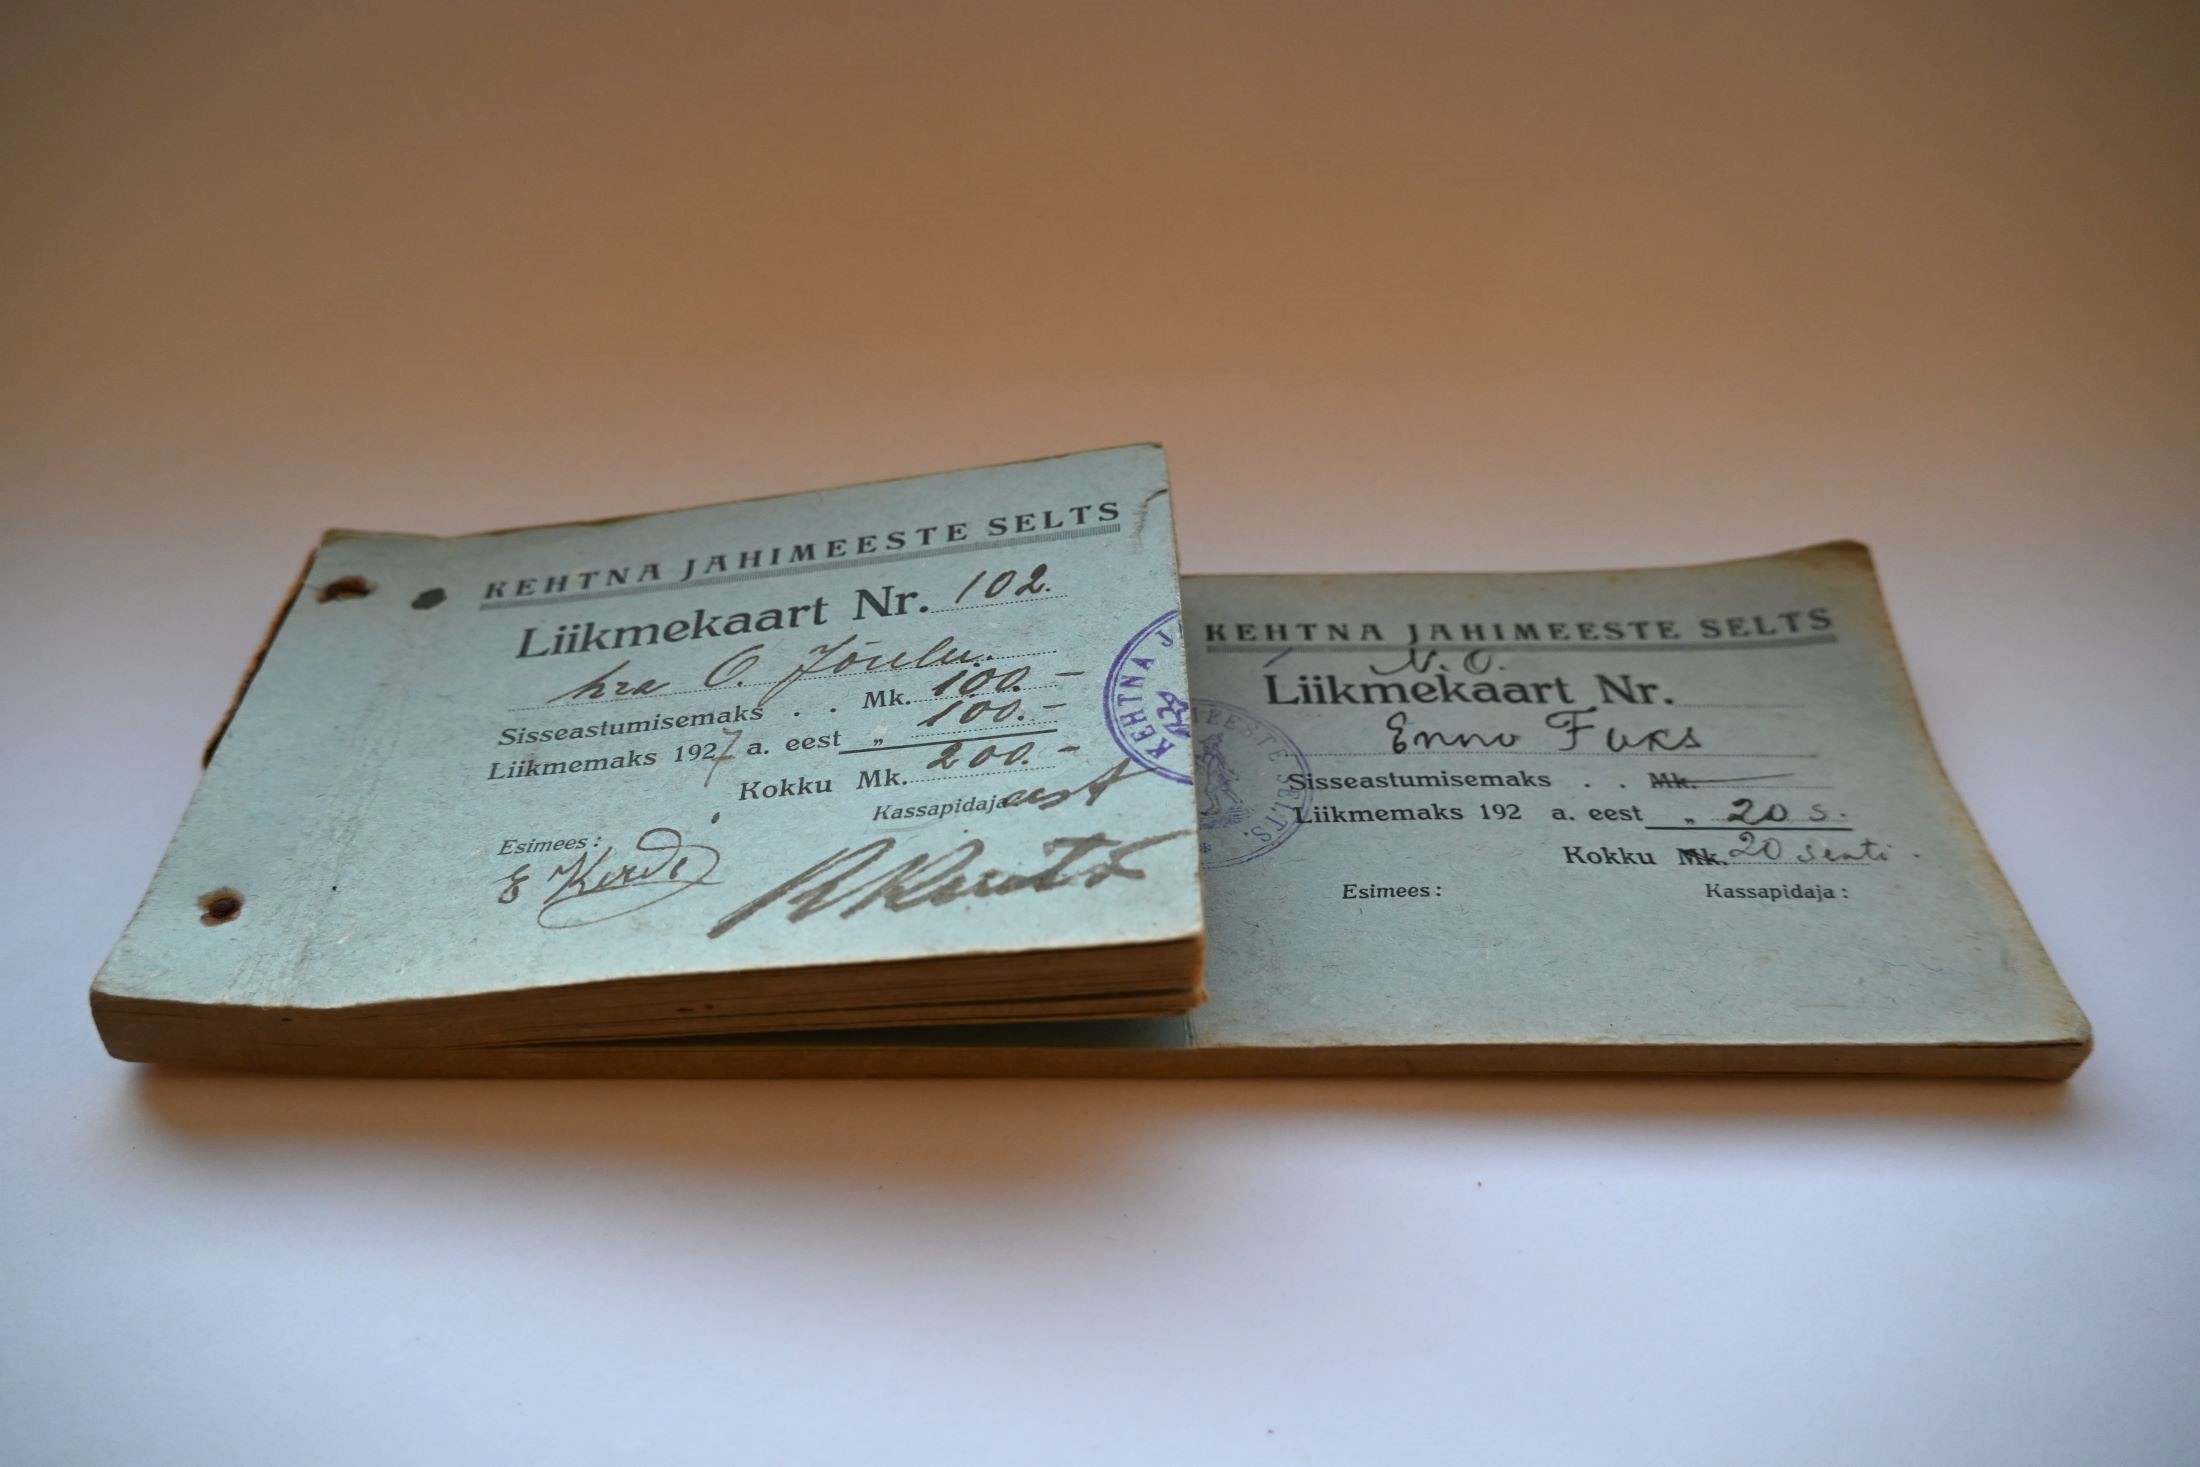 KEHTNA JAHIMEESTE SELTS
Liikmekaart Nr. 102.
hra O. Jõulu.
Sisseastumisemaks . . Mk. 100.–
Liikmemaks 1927 a. eest „ 100.–
Kokku Mk. 200.–
Kassapidaja eest
Esimees:
E
KEHTNA J
KEHTNA JAHIMEESTE SELTS
N. O.
Liikmekaart Nr.
Enno Fuks
Sisseastumisemaks . . Mk.
Liikmemaks 192 a. eest „ 20 s.
Kokku Mk. 20 senti.
Esimees: Kassapidaja:
MEESTE SELTS. *